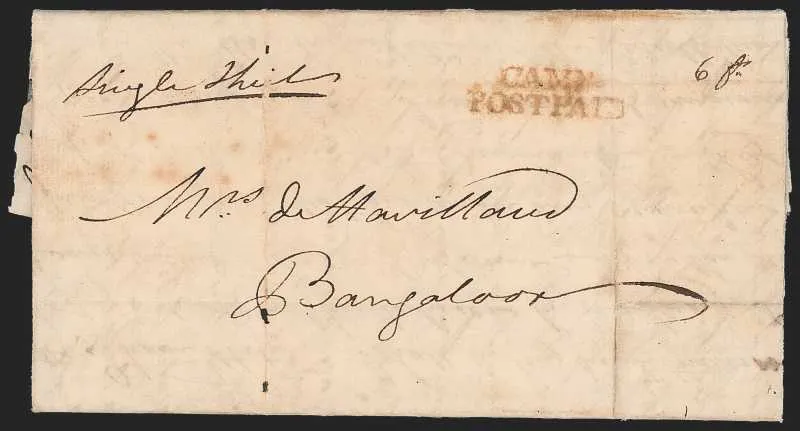 Single Sheet
CAMP
POST PAID
6 fs
Mrs de Havilland
Bangaloor